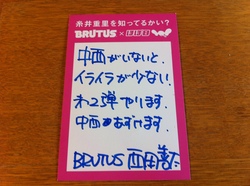 糸井重里を知ってるかい？
BRUTUS×ほぼ日
中西がいないと、
イライラが少ない。
わ2弾でります。
中西あずけます。
BRUTUS 西田善太